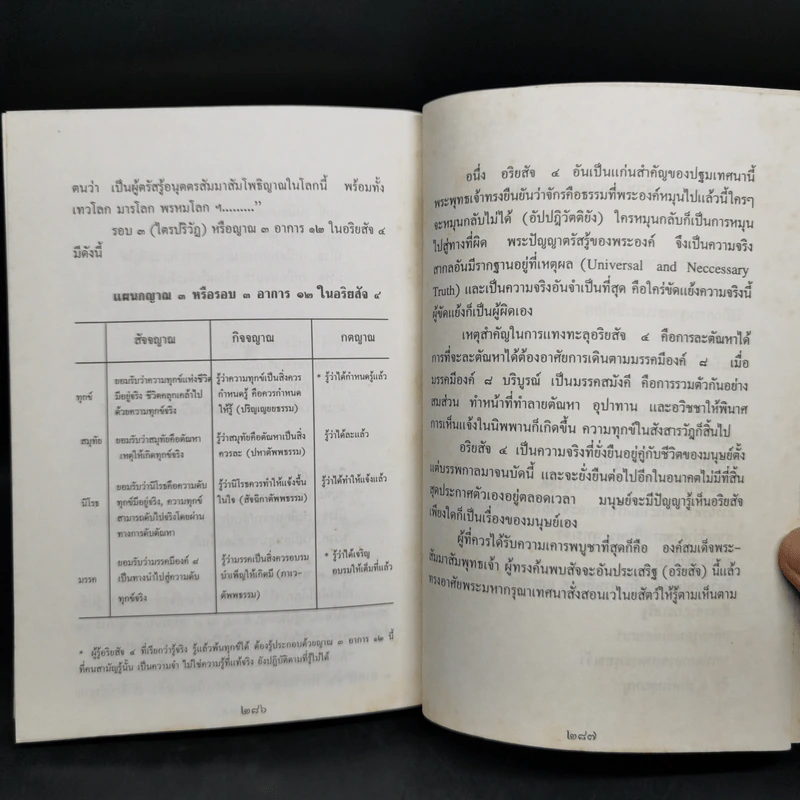 ตนว่า เป็นผู้ตรัสรู้อนุตตรสัมมาสัมโพธิญาณในโลกนี้ พร้อมทั้ง
เทวโลก มารโลก พรหมโลก ฯ.........”
รอบ ๓ (ไตรปริวัฏ) หรือญาณ ๓ อาการ ๑๒ ในอริยสัจ ๔
มีดังนี้
แผนกญาณ ๓ หรือรอบ ๓ อาการ ๑๒ ในอริยสัจ ๔
สัจจญาณ กิจจญาณ กตญาณ
ทุกข์
ยอมรับว่าความทุกข์แห่งชีวิต
มีอยู่จริง ชีวิตคลุกเคล้าไป
ด้วยความทุกข์จริง
รู้ว่าความทุกข์เป็นสิ่งควร
กำหนดรู้ คือควรกำหนด
ให้รู้ (ปริญเญยยธรรม)
* รู้ว่าได้กำหนดรู้แล้ว
สมุทัย
ยอมรับว่าสมุทัยคือตัณหา
เหตุให้เกิดทุกข์จริง
รู้ว่าสมุทัยคือตัณหาเป็นสิ่ง
ควรละ (ปหาตัพพธรรม)
รู้ว่าได้ละแล้ว
นิโรธ
ยอมรับว่านิโรธคือความดับ
ทุกข์มีอยู่จริง, ความทุกข์
สามารถดับไปจริงโดยผ่าน
ทางการดับตัณหา
รู้ว่านิโรธควรทำให้แจ้งขึ้น
ในใจ (สัจฉิกาตัพพธรรม)
รู้ว่าได้ทำให้แจ้งแล้ว
มรรค
ยอมรับว่ามรรคมีองค์ ๘
เป็นทางนำไปสู่ความดับ
ทุกข์จริง
รู้ว่ามรรคเป็นสิ่งควรอบรม
บำเพ็ญให้เกิดมี (ภาเว-
ตัพพธรรม)
* รู้ว่าได้เจริญ
อบรมให้เต็มที่แล้ว
* ผู้รู้อริยสัจ ๔ ที่เรียกว่ารู้จริง รู้แล้วพ้นทุกข์ได้ ต้องรู้ประกอบด้วยญาณ ๓ อาการ ๑๒ นี้
ที่คนสามัญรู้นั้น เป็นความจำ ไม่ใช่ความรู้ที่แท้จริง ยังปฏิบัติตามที่รู้ไม่ได้
๒๘๖
อนึ่ง อริยสัจ ๔ อันเป็นแก่นสำคัญของปฐมเทศนานี้
พระพุทธเจ้าทรงยืนยันว่าจักรคือธรรมที่พระองค์หมุนไปแล้วนี้ใครๆ
จะหมุนกลับไม่ได้ (อัปปฏิวัตติยัง) ใครหมุนกลับก็เป็นการหมุน
ไปสู่ทางที่ผิด พระปัญญาตรัสรู้ของพระองค์ จึงเป็นความจริง
สากลอันมีรากฐานอยู่ที่เหตุผล (Universal and Neccessary
Truth) และเป็นความจริงอันจำเป็นที่สุด คือใครขัดแย้งความจริงนี้
ผู้ขัดแย้งก็เป็นผู้ผิดเอง
เหตุสำคัญในการแทงทะลุอริยสัจ ๔ คือการละตัณหาได้
การที่จะละตัณหาได้ต้องอาศัยการเดินตามมรรคมีองค์ ๘ เมื่อ
มรรคมีองค์ ๘ บริบูรณ์ เป็นมรรคสมังคี คือการรวมตัวกันอย่าง
สมส่วน ทำหน้าที่ทำลายตัณหา อุปาทาน และอวิชชาให้พินาศ
การเห็นแจ้งในนิพพานก็เกิดขึ้น ความทุกข์ในสังสารวัฏก็สิ้นไป
อริยสัจ ๔ เป็นความจริงที่ยั่งยืนอยู่คู่กับชีวิตของมนุษย์ตั้ง
แต่บรรพกาลมาจนบัดนี้ และจะยั่งยืนต่อไปอีกในอนาคตไม่มีที่สิ้น
สุดประกาศตัวเองอยู่ตลอดเวลา มนุษย์จะมีปัญญารู้เห็นอริยสัจ
เพียงใดก็เป็นเรื่องของมนุษย์เอง
ผู้ที่ควรได้รับความเคารพบูชาที่สุดก็คือ องค์สมเด็จพระ-
สัมมาสัมพุทธเจ้า ผู้ทรงค้นพบสัจจะอันประเสริฐ (อริยสัจ) นี้แล้ว
ทรงอาศัยพระมหากรุณาเทศนาสั่งสอนเวไนยสัตว์ให้รู้ตามเห็นตาม
๒๘๗